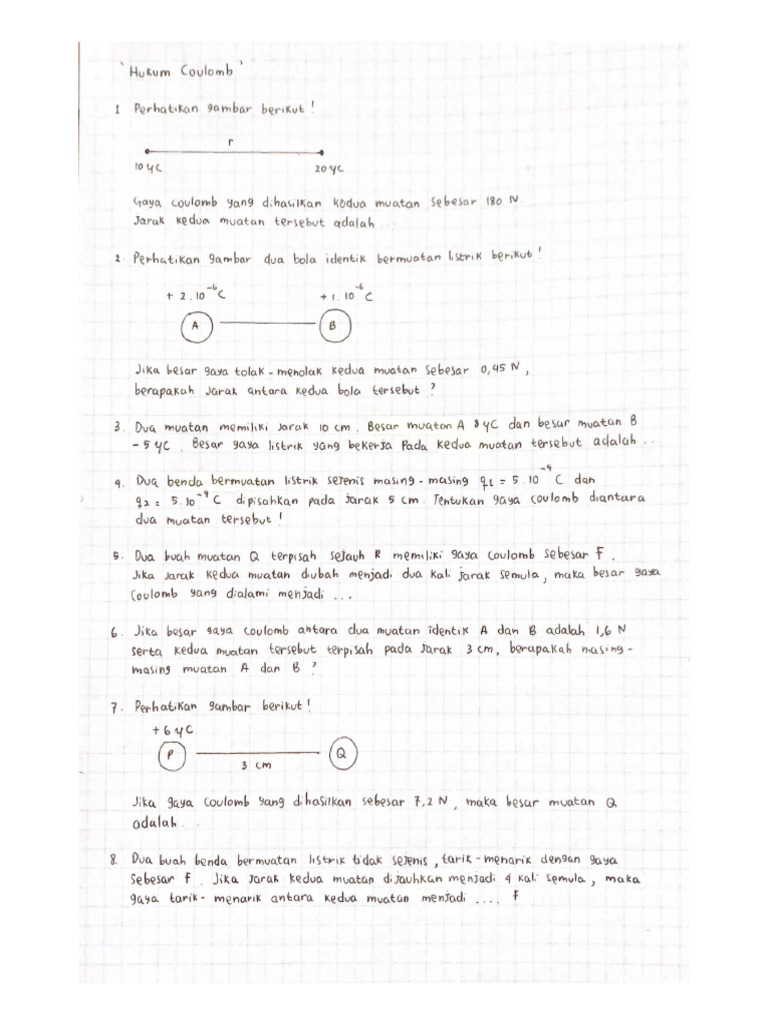 'Hukum Coulomb'
1 Perhatikan gambar berikut!
r
10 μC 20 μC
Gaya coulomb yang dihasilkan kodua muatan sebesar 180 N
Jarak kedua muatan tersebut adalah ...
2. Perhatikan gambar dua bola identik bermuatan listrik berikut!
+ 2.10⁻⁶ C + 1.10⁻⁶ C
A B
Jika besar gaya tolak-menolak kedua muatan sebesar 0,45 N,
berapakah jarak antara kedua bola tersebut?
3. Dua muatan memiliki jarak 10 cm. Besar muatan A 8 μC dan besar muatan B
-5 μC. Besar gaya listrik yang bekerja pada kedua muatan tersebut adalah ..
4. Dua benda bermuatan listrik sejenis masing-masing q₁ = 5.10⁻⁴ C dan
q₂ = 5.10⁻⁴ C dipisahkan pada jarak 5 cm. Tentukan gaya coulomb diantara
dua muatan tersebut!
5. Dua buah muatan Q terpisah sejauh R memiliki gaya coulomb sebesar F.
Jika jarak kedua muatan diubah menjadi dua kali jarak semula, maka besar gaya
coulomb yang dialami menjadi ...
6. Jika besar gaya coulomb antara dua muatan identik A dan B adalah 1,6 N
serta kedua muatan tersebut terpisah pada jarak 3 cm, berapakah masing-
masing muatan A dan B?
7. Perhatikan gambar berikut!
+6 μC
P Q
3 cm
Jika gaya coulomb yang dihasilkan sebesar 7,2 N, maka besar muatan Q
adalah ..
8. Dua buah benda bermuatan listrik tidak sejenis, tarik-menarik dengan gaya
sebesar F. Jika jarak kedua muatan dijauhkan menjadi 4 kali semula, maka
gaya tarik-menarik antara kedua muatan menjadi .... F